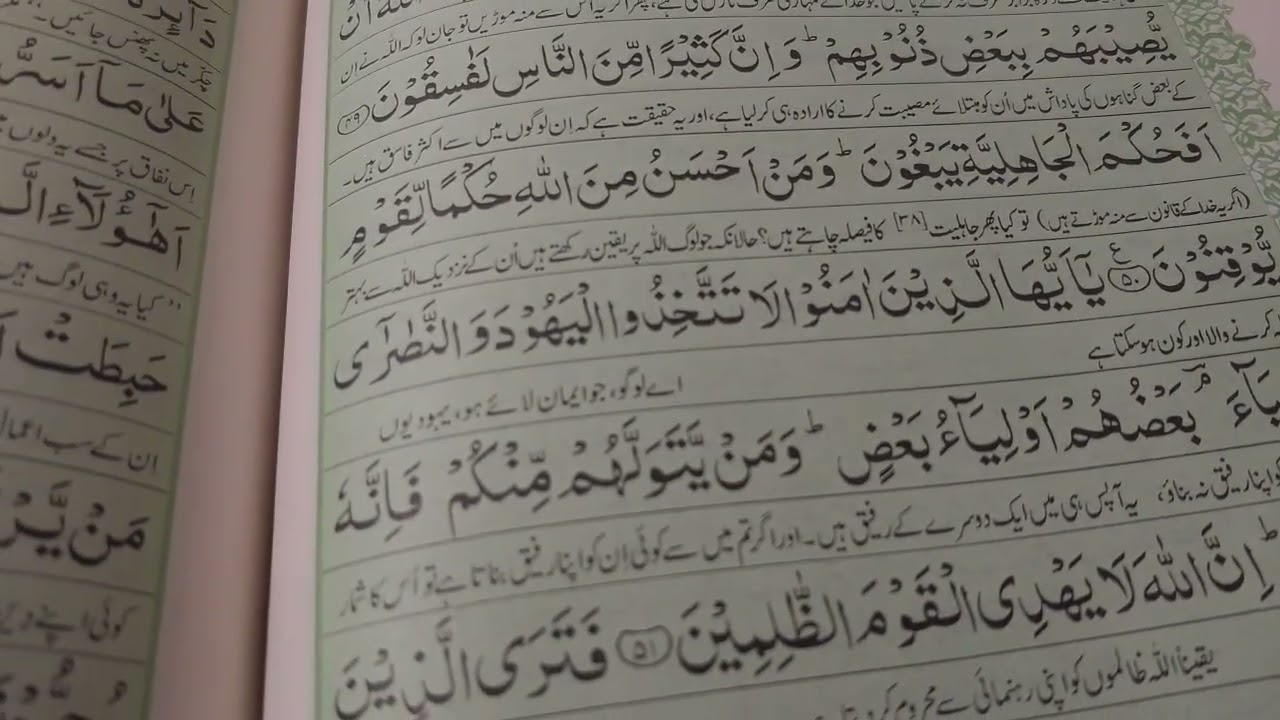 يُّصِيْبَهُمْ بِبَعْضِ ذُنُوْبِهِمْ ؕ وَ اِنَّ كَثِيْرًا مِّنَ النَّاسِ لَفٰسِقُوْنَ ﴿۴۹﴾
کے بعض گناہوں کی پاداش میں اُن کو مبتلائے مصیبت کرنے کا ارادہ ہی کر لیا ہے، اور یہ حقیقت ہے کہ اِن لوگوں میں سے اکثر فاسق ہیں۔
اَفَحُكْمَ الْجَاهِلِيَّةِ يَبْغُوْنَ ؕ وَ مَنْ اَحْسَنُ مِنَ اللّٰهِ حُكْمًا لِّقَوْمٍ
(اگر یہ خدا کے قانون سے منہ موڑتے ہیں) تو کیا پھر جاہلیت [۳۸] کا فیصلہ چاہتے ہیں؟ حالانکہ جو لوگ اللہ پر یقین رکھتے ہیں اُن کے نزدیک اللہ سے بہتر
يُّوْقِنُوْنَ ﴿۵۰﴾ ع يٰۤاَيُّهَا الَّذِيْنَ اٰمَنُوْا لَا تَتَّخِذُوا الْيَهُوْدَ وَ النَّصٰرٰۤى
کرنے والا اور کون ہو سکتا ہے
اے لوگو، جو ایمان لائے ہو، یہودیوں
بَعْضُهُمْ اَوْلِيَآءُ بَعْضٍ ؕ وَ مَنْ يَّتَوَلَّهُمْ مِّنْكُمْ فَاِنَّهٗ
اپنا رفیق نہ بناؤ، یہ آپس ہی میں ایک دوسرے کے رفیق ہیں۔ اور اگر تم میں سے کوئی اِن کو اپنا رفیق بناتا ہے تو اُس کا شمار
اِنَّ اللّٰهَ لَا يَهْدِى الْقَوْمَ الظّٰلِمِيْنَ ﴿۵۱﴾ فَتَرَى الَّذِيْنَ
یقیناً اللہ ظالموں کو اپنی رہنمائی سے محروم کر دیتا
عَلٰى مَاۤ اَسَرُّ
اِس نفاق پر جسے یہ دلوں
اَهٰۤؤُلَآءِ
”کیا یہ وہی لوگ ہیں
حَبِطَتْ
ان کے سب اعمال
مَنْ يَّرْ
کوئی اپنے دین